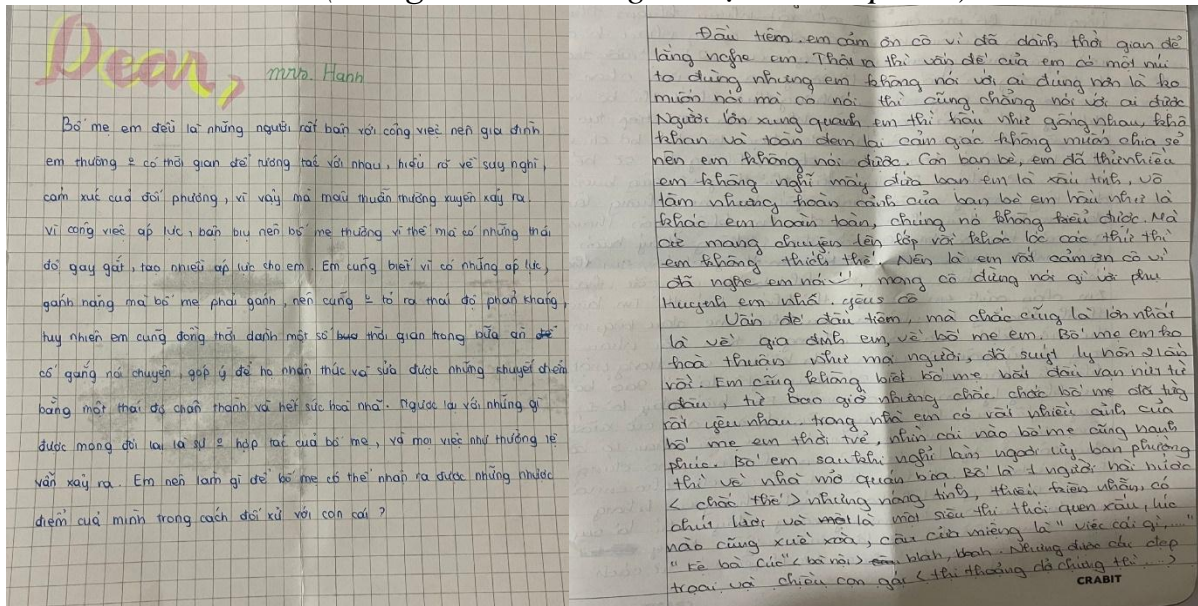 Dear,
mrs. Hanh
Bố mẹ em đều là những người rất bận với công việc nên gia đình
em thường có thời gian để tương tác với nhau, hiểu rõ về suy nghĩ,
cảm xúc của đối phương, vì vậy mà mâu thuẫn thường xuyên xảy ra.
Vì công việc áp lực, bận bịu nên bố mẹ thường vì thế mà có những thái
độ gay gắt, tạo nhiều áp lực cho em. Em cũng biết vì có những áp lực,
gánh nặng mà bố mẹ phải gánh, nên cũng tỏ ra thái độ phản kháng,
tuy nhiên em cũng đồng thời dành một số thời gian trong bữa ăn để
cố gắng nói chuyện, góp ý để họ nhận thức và sửa được những khuyết điểm
bằng một thái độ chân thành và hết sức hoà nhã. Ngược lại với những gì
được mong đợi lại là sự hợp tác của bố mẹ, và mọi việc như thường lệ
vẫn xảy ra. Em nên làm gì để bố mẹ có thể nhận ra được những nhược
điểm của mình trong cách đối xử với con cái ?
Đầu tiên, em cảm ơn cô vì đã dành thời gian để
lắng nghe em. Thật ra thì vấn đề của em có một núi
to đùng nhưng em không nói với ai đúng hơn là ko
muốn nói mà có nói thì cũng chẳng nói với ai được
Người lớn xung quanh em thì hầu như giống nhau, khô
khan và toàn đem lại cảm giác không muốn chia sẻ
nên em không nói được. Còn bạn bè, em đã thử nhiều
em không nghĩ mấy đứa bạn em là xấu tính, vô
tâm nhưng hoàn cảnh của bạn bè em hầu như là
khác em hoàn toàn, chúng nó không hiểu được. Mà
cứ mang chuyện lên lớp rồi khóc lóc các thứ thì
em không thích thế. Nên là em rất cảm ơn cô vì
đã nghe em nói, mong cô đừng nói gì với phụ
huynh em nhá. yêu cô
Vấn đề đầu tiên, mà chắc cũng là lớn nhất
là về gia đình em, về bố mẹ em. Bố mẹ em ko
hoà thuận như mọi người, đã suýt ly hôn 2 lần
rồi. Em cũng không biết bố mẹ bắt đầu rạn nứt từ
đâu, từ bao giờ nhưng chắc chắc bố mẹ đã từng
rất yêu nhau, trong nhà em có rất nhiều ảnh của
bố mẹ em thời trẻ, nhìn cái nào bố mẹ cũng hạnh
phúc. Bố em sau khi nghỉ làm ngoài ủy ban phường
thì về nhà mở quán bia. Bố là 1 người hài hước
< chắc thế > nhưng nóng tính, thiếu kiên nhẫn, có
chút lười và một là một siêu thị thói quen xấu, lúc
nào cũng xuề xoà, câu cửa miệng là "việc cái gì,..."
"kệ bà cúc" < bà nội > blah, blah. Nhưng được các đẹp
trai và chiều con gái < thi thoảng dở chứng thì ... >
CRABIT